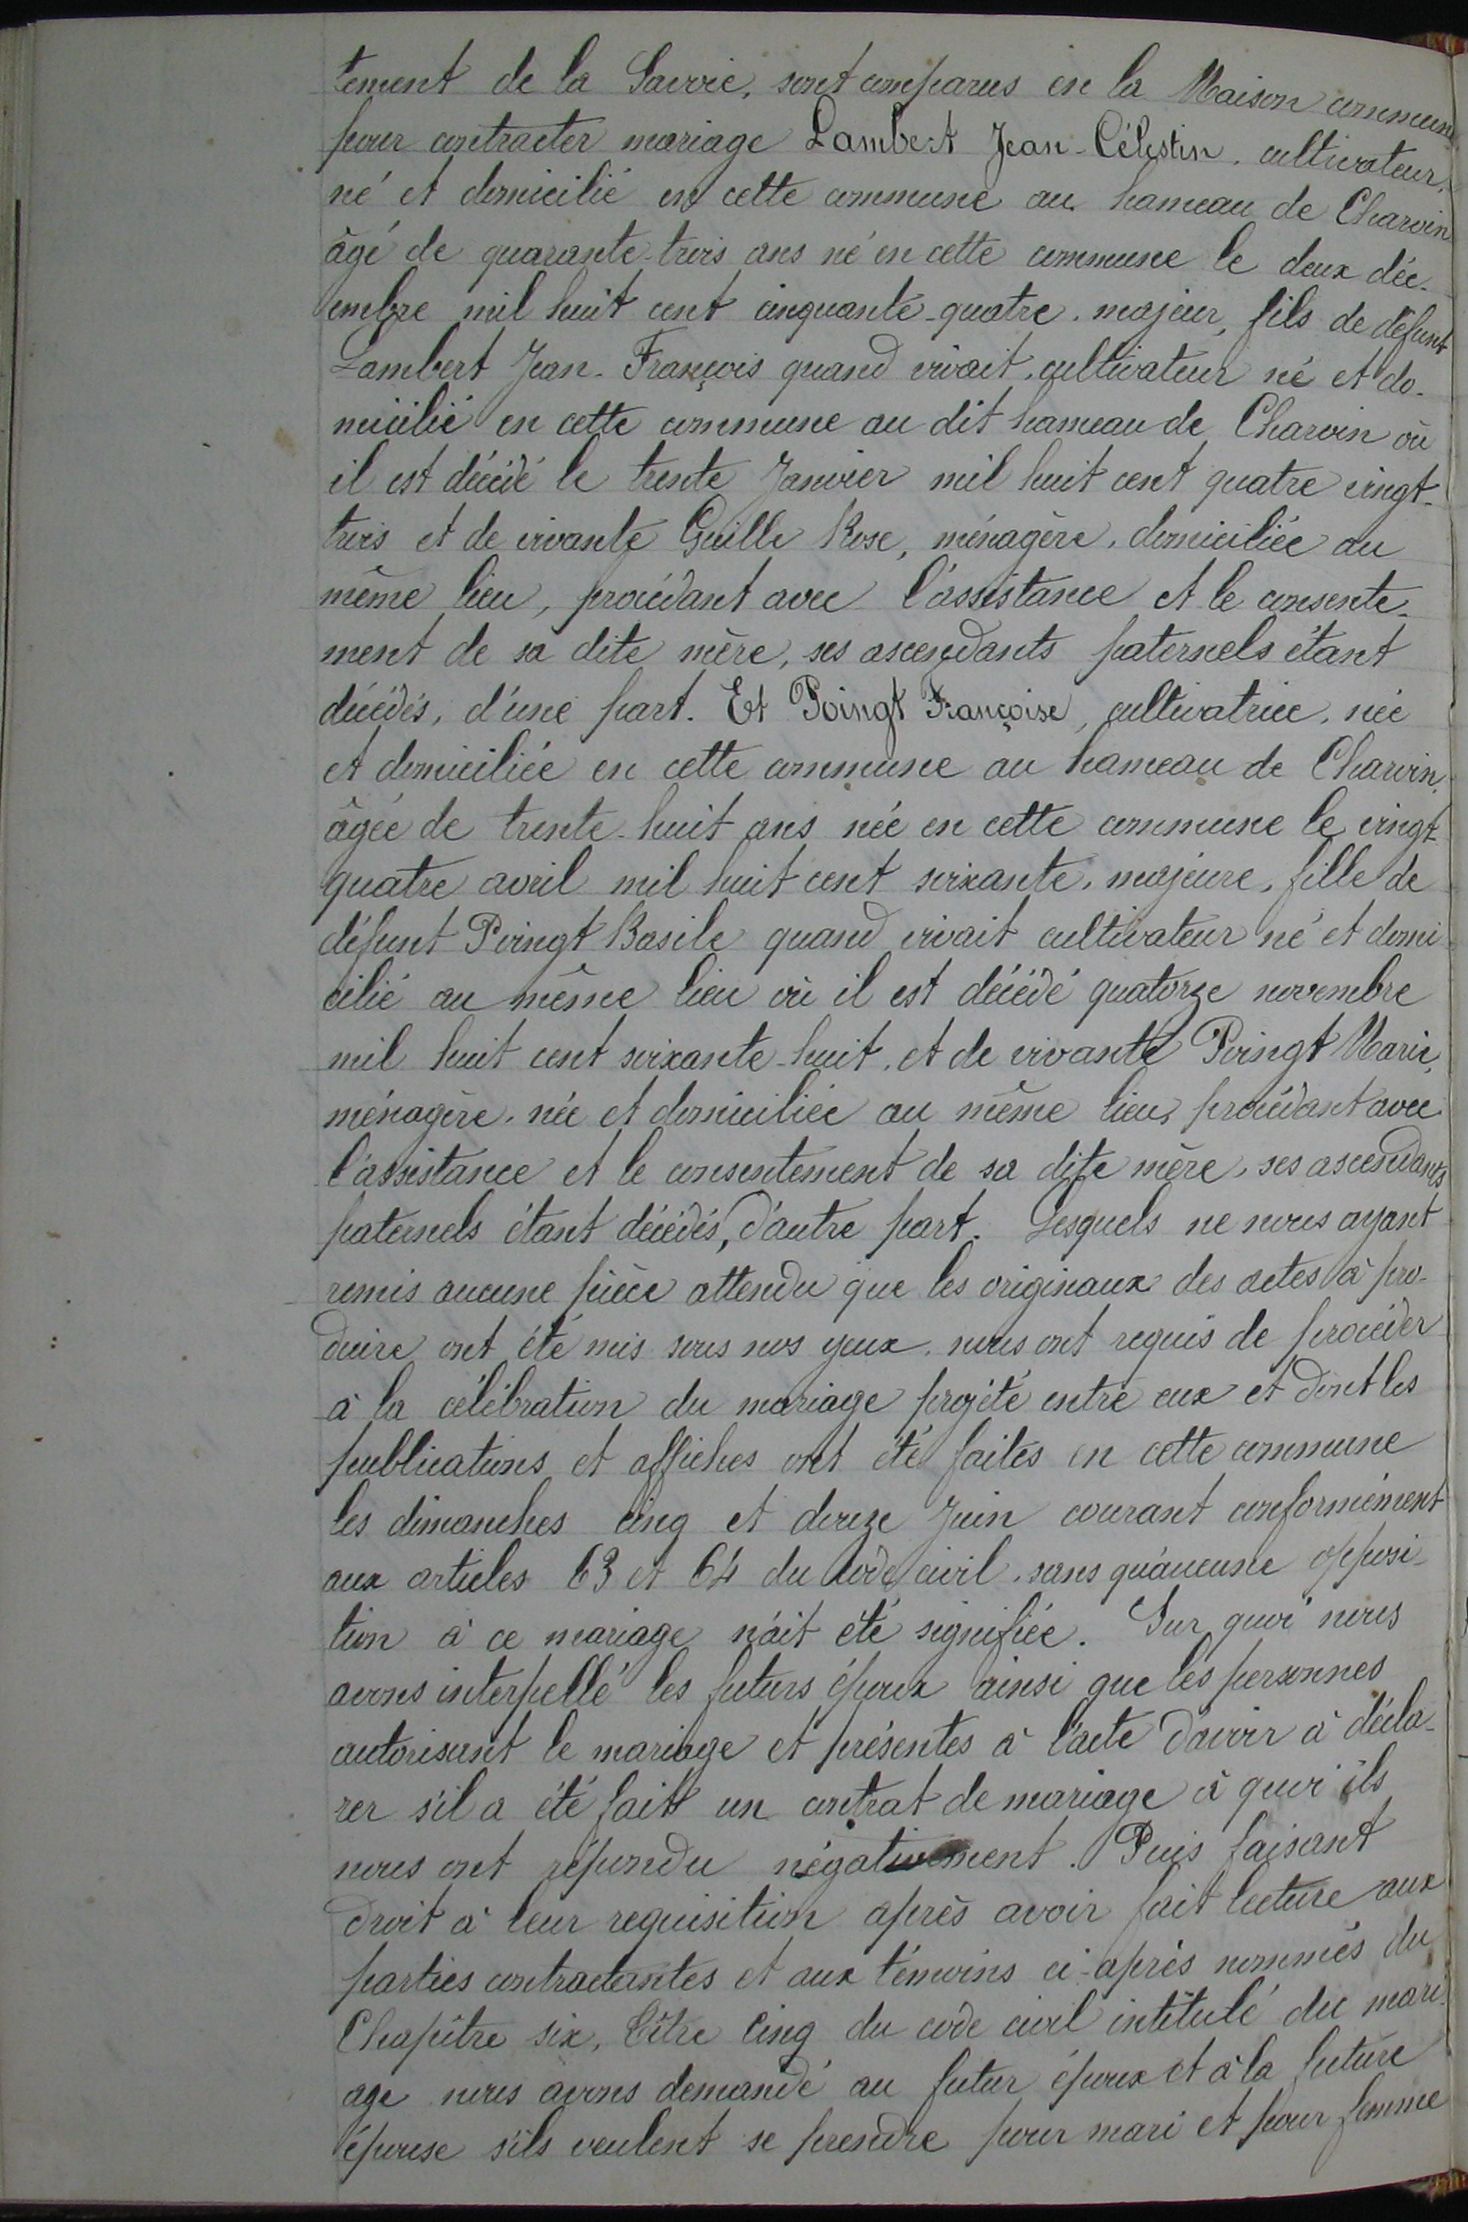 tement de la Savoie, sont comparus en la Maison commune
pour contracter mariage Lambert Jean-Célestin, cultivateur,
né et domicilié en cette commune au hameau de Charvin
âgé de quarante-trois ans né en cette commune le deux déc-
embre mil huit cent cinquante-quatre, majeur, fils de défunt
Lambert Jean-François quand vivait cultivateur né et do-
micilié en cette commune au dit hameau de Charvin où
il est décédé le trente Janvier mil huit cent quatre vingt-
trois et de vivante Guille Rose, ménagère, domiciliée au
même lieu, procédant avec l'assistance et le consente-
ment de sa dite mère, ses ascendants paternels étant
décédés, d'une part. Et Poingt Françoise, cultivatrice, née
et domiciliée en cette commune au hameau de Charvin,
âgée de trente-huit ans née en cette commune le vingt-
quatre avril mil huit cent soixante, majeure, fille de
défunt Poingt Basile quand vivait cultivateur né et domi
cilié au même lieu où il est décédé quatorze novembre
mil huit cent soixante-huit, et de vivante Poingt Marie,
ménagère, née et domiciliée au même lieu, procédant avec
l'assistance et le consentement de sa dite mère, ses ascendants
paternels étant décédés, d'autre part. Lesquels ne nous ayant
remis aucune pièce attendu que les originaux des actes à pro-
duire ont été mis sous nos yeux, nous ont requis de procéder
à la célébration du mariage projeté entre eux et dont les
publications et affiches ont été faites en cette commune
les dimanches cinq et douze Juin courant conformément
aux articles 63 et 64 du Code civil, sans qu'aucune opposi-
tion à ce mariage n'ait été signifiée. Sur quoi nous
avons interpellé les futurs époux ainsi que les personnes
autorisant le mariage et présentes à l'acte d'avoir à décla-
rer s'il a été fait un contrat de mariage à quoi ils
nous ont répondu négativement. Puis faisant
droit à leur requisition après avoir fait lecture aux
parties contractantes et aux témoins ci-après nommés du
Chapître six, titre cinq du code civil intitulé du mari-
age nous avons demandé au futur époux et à la future
épouse s'ils veulent se prendre pour mari et pour femme